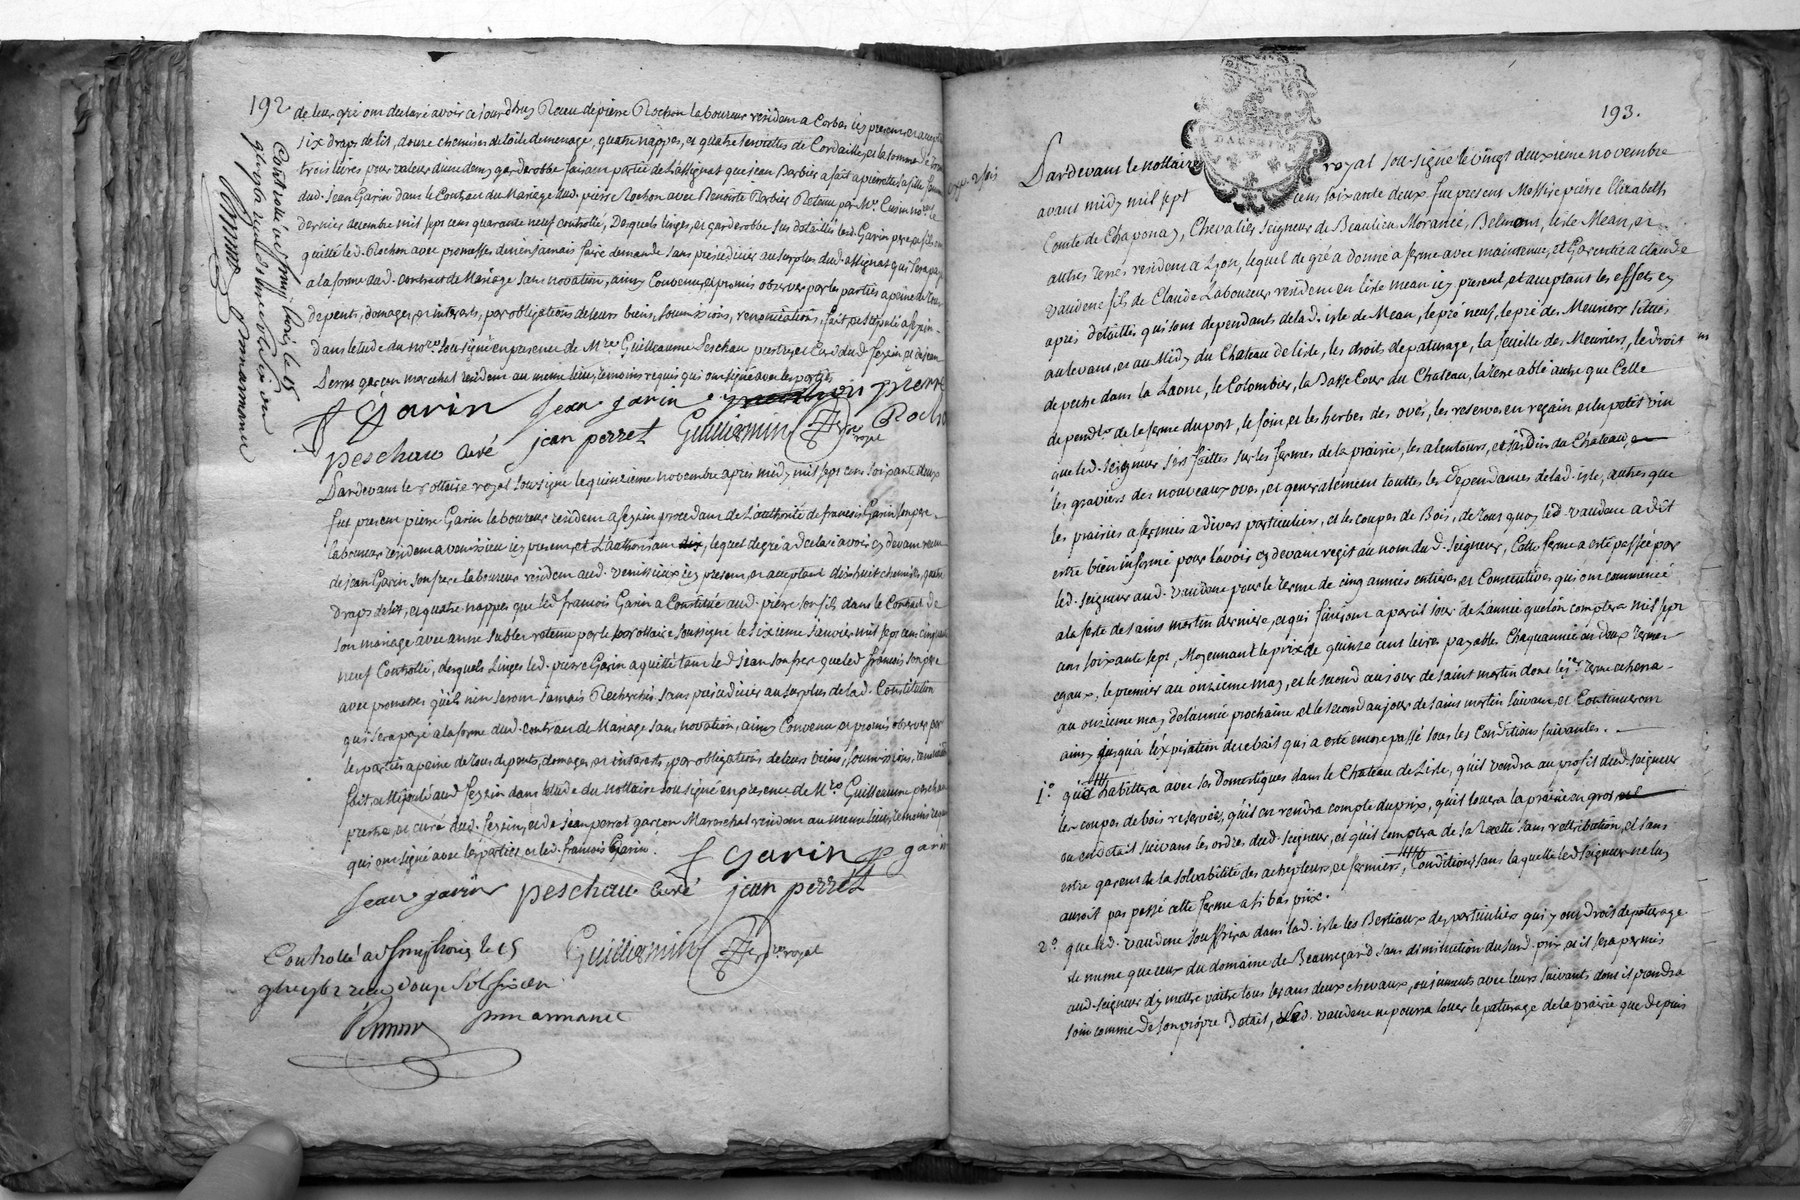 192
de leur gré ont declaré avoir ce jourdhuy Receu de pierre Rochon laboureur residem a Corbas icy present et acceptant
six draps de lit, douze chemises de toile de menage, quatre nappes, et quatre serviettes de Cordaille, et la somme de
trois livres pour valeur d'un demy garderobbe faisant partie de L'assignat que jean Barbier a fait a pierrette sa fille femme
dud. Jean Garin dans le Contrat du Mariage dud. pierre Rochon avec Benoiste Barbier Retenu par Me. Cusin no.re le
dernier decembre mil sept cent quarante neuf controllé, Desquels linges, et garderobbe sus detaillés led. Garin pere et fils ont
quitté led. Rochon avec promesses de n'en jamais faire demande sans prejudicier au surplus dud. assignat qui sera payé
a la forme dud. contract de Mariage sans novation, ainsy Convenu, et promis observer par les parties a peine de tous
depents, domages, et interets, par obligations de leurs biens, soumissions, renonciations, fait, et stipulé a feyzin
dans letude du no.re soussigné en presence de M.re Guilleaume Peschau prestre, et Curé dud. feyzin et de jean
Perret garçon marechal residem au meme lieu, temoins requis qui ont signé avec les parties
f Garin jean garin pierre
Rochon
peschau curé jean perret Guillermin no.re royal
Controllé a St simphorien le 15
9bre 1762 reçu
Pardevant le Nottaire royal soussigné le quinzieme novembre apres midy mil sept cent soixante deux
fut present pierre Garin laboureur residem a feyzin procedant de L'authorité de francois Garin son pere
laboureur residem a venissieu icy present, et L'authorisant, lequel de gré a declaré avoir cy devant receu
de jean Garin son frere laboureur residem aud. venissieux icy present, et acceptant dixhuit chemises, quatre
draps de lit, et quatre nappes que led. francois Garin a Constitué aud. pierre son fils dans le Contract de
son mariage avec anne sublet retenu par le nottaire soussigné le sixieme janvier mil sept cent cinquante
neuf Controllé, desquels Linges led. pierre Garin a quitté tant led. jean son frere que led. francois son pere
avec promesses quels n'en seront jamais Recherchés sans prejudicier au surplus de lad. Constitution
qui sera payé a la forme dud. contract de Mariage sans novation, ainsy Convenu et promis observer par
les parties a peine de tous depents, domages, et interets, par obligations de leurs biens, soumissions, renonciations
fait, et stipulé aud. feyzin dans letude du nottaire soussigné en presence de M.re Guilleaume peschau
prestre, et curé dud. feyzin, et de jean perret garçon Marechal residem au meme lieu, temoins requis
qui ont signé avec les parties, et led. francois Garin.
f Garin p garin
jean garin peschau curé jean perret
Controllé a St simphorien le 15 Guillermin no.re royal
9bre 1762 reçu douze sols six den
193.
Pardevant le nottaire royal sou-signé le vingt deuxieme novembre
DAUPHINE
avant midy mil sept cent soixante deux fut present Messire pierre Elizabeth
Comte de Chaponay, Chevalier, seigneur de Beaulieu Morancé, Belmont, lisle Mean, et
autres Terres residem a Lyon, lequel de gré a donné a ferme avec maintenue, et Garentie a claude
vaudene fils de Claude Laboureur residem en lisle mean icy present, et acceptant les effets cy
apres detaillés qui sont dependants de lad. isle de Mean, le pré neuf, le pré des Meuniers situés
au levant, et au Midy du Chateau de lisle, les droits de paturage, la feuille des Meuriers, le droit
de peche dans la Laone, le Colombier, la Basse Cour du Chateau, la Terre a blé autre que Celle
depend.te de la ferme du port, le foin, et les herbes des oves, les reserves en regain et du petit vin
que led. seigneur s'est faittes sur les fermes de la prairie, les alentours, et jardin du Chateau,
les graviers des nouveaux oves, et generalement touttes les Dependances de lad. isle, autres que
les prairies afermés a divers particuliers, et les coupes de Bois, de tout quoy led. vaudene a dit
estre bien informé pour l'avoir cy devant regit au nom dud. seigneur, Cette ferme a esté passée par
led. seigneur aud. vaudene pour le Terme de cinq années entieres, et Consecutives, qui ont commencé
a la feste de saint martin derniere, et qui finiront a pareil jour de L'année que lon comptera mil sept
cent soixante sept, Moyennant le prix de quinze cent livres payable Chaque année en deux Termes
egaux, le premier au onzieme may, et le second au jour de saint martin dont le 1.er terme echerra
au onzieme may de l'année prochaine, et le second au jour de saint martin suivant, et Continueront
ainsy jusqu'a lexpiration du cebail qui a esté encore passé sous les Conditions suivantes.
1.° quil habittera avec ses Domestiques dans le Chateau de Lisle, quil vendra au profit dud. seigneur
les coupes de bois reservées, quil en rendra compte du prix, quil louera la prairie en gros
ou en detail suivant les ordres dud. seigneur, et quil comptera de sa Recette sans retribution, et sans
estre garent de la solvabilité des achepteurs, et fermiers, Conditions sans laquelle led. seigneur ne luy
auroit pas passé cette ferme a si bas prix.
2.° que led. vaudene souffrira dans lad. isle les Bestiaux des particuliers qui y ont droit de paturage
de meme que ceux du domaine de Beauregard sans diminution du susd. prix, et il sera permis
aud. seigneur d'y mettre paitre tous les ans deux chevaux, ou juments avec leurs suivants dont il prendra
soin comme de son propre Betail, led. vaudene ne pourra louer le paturage de la prairie que depuis